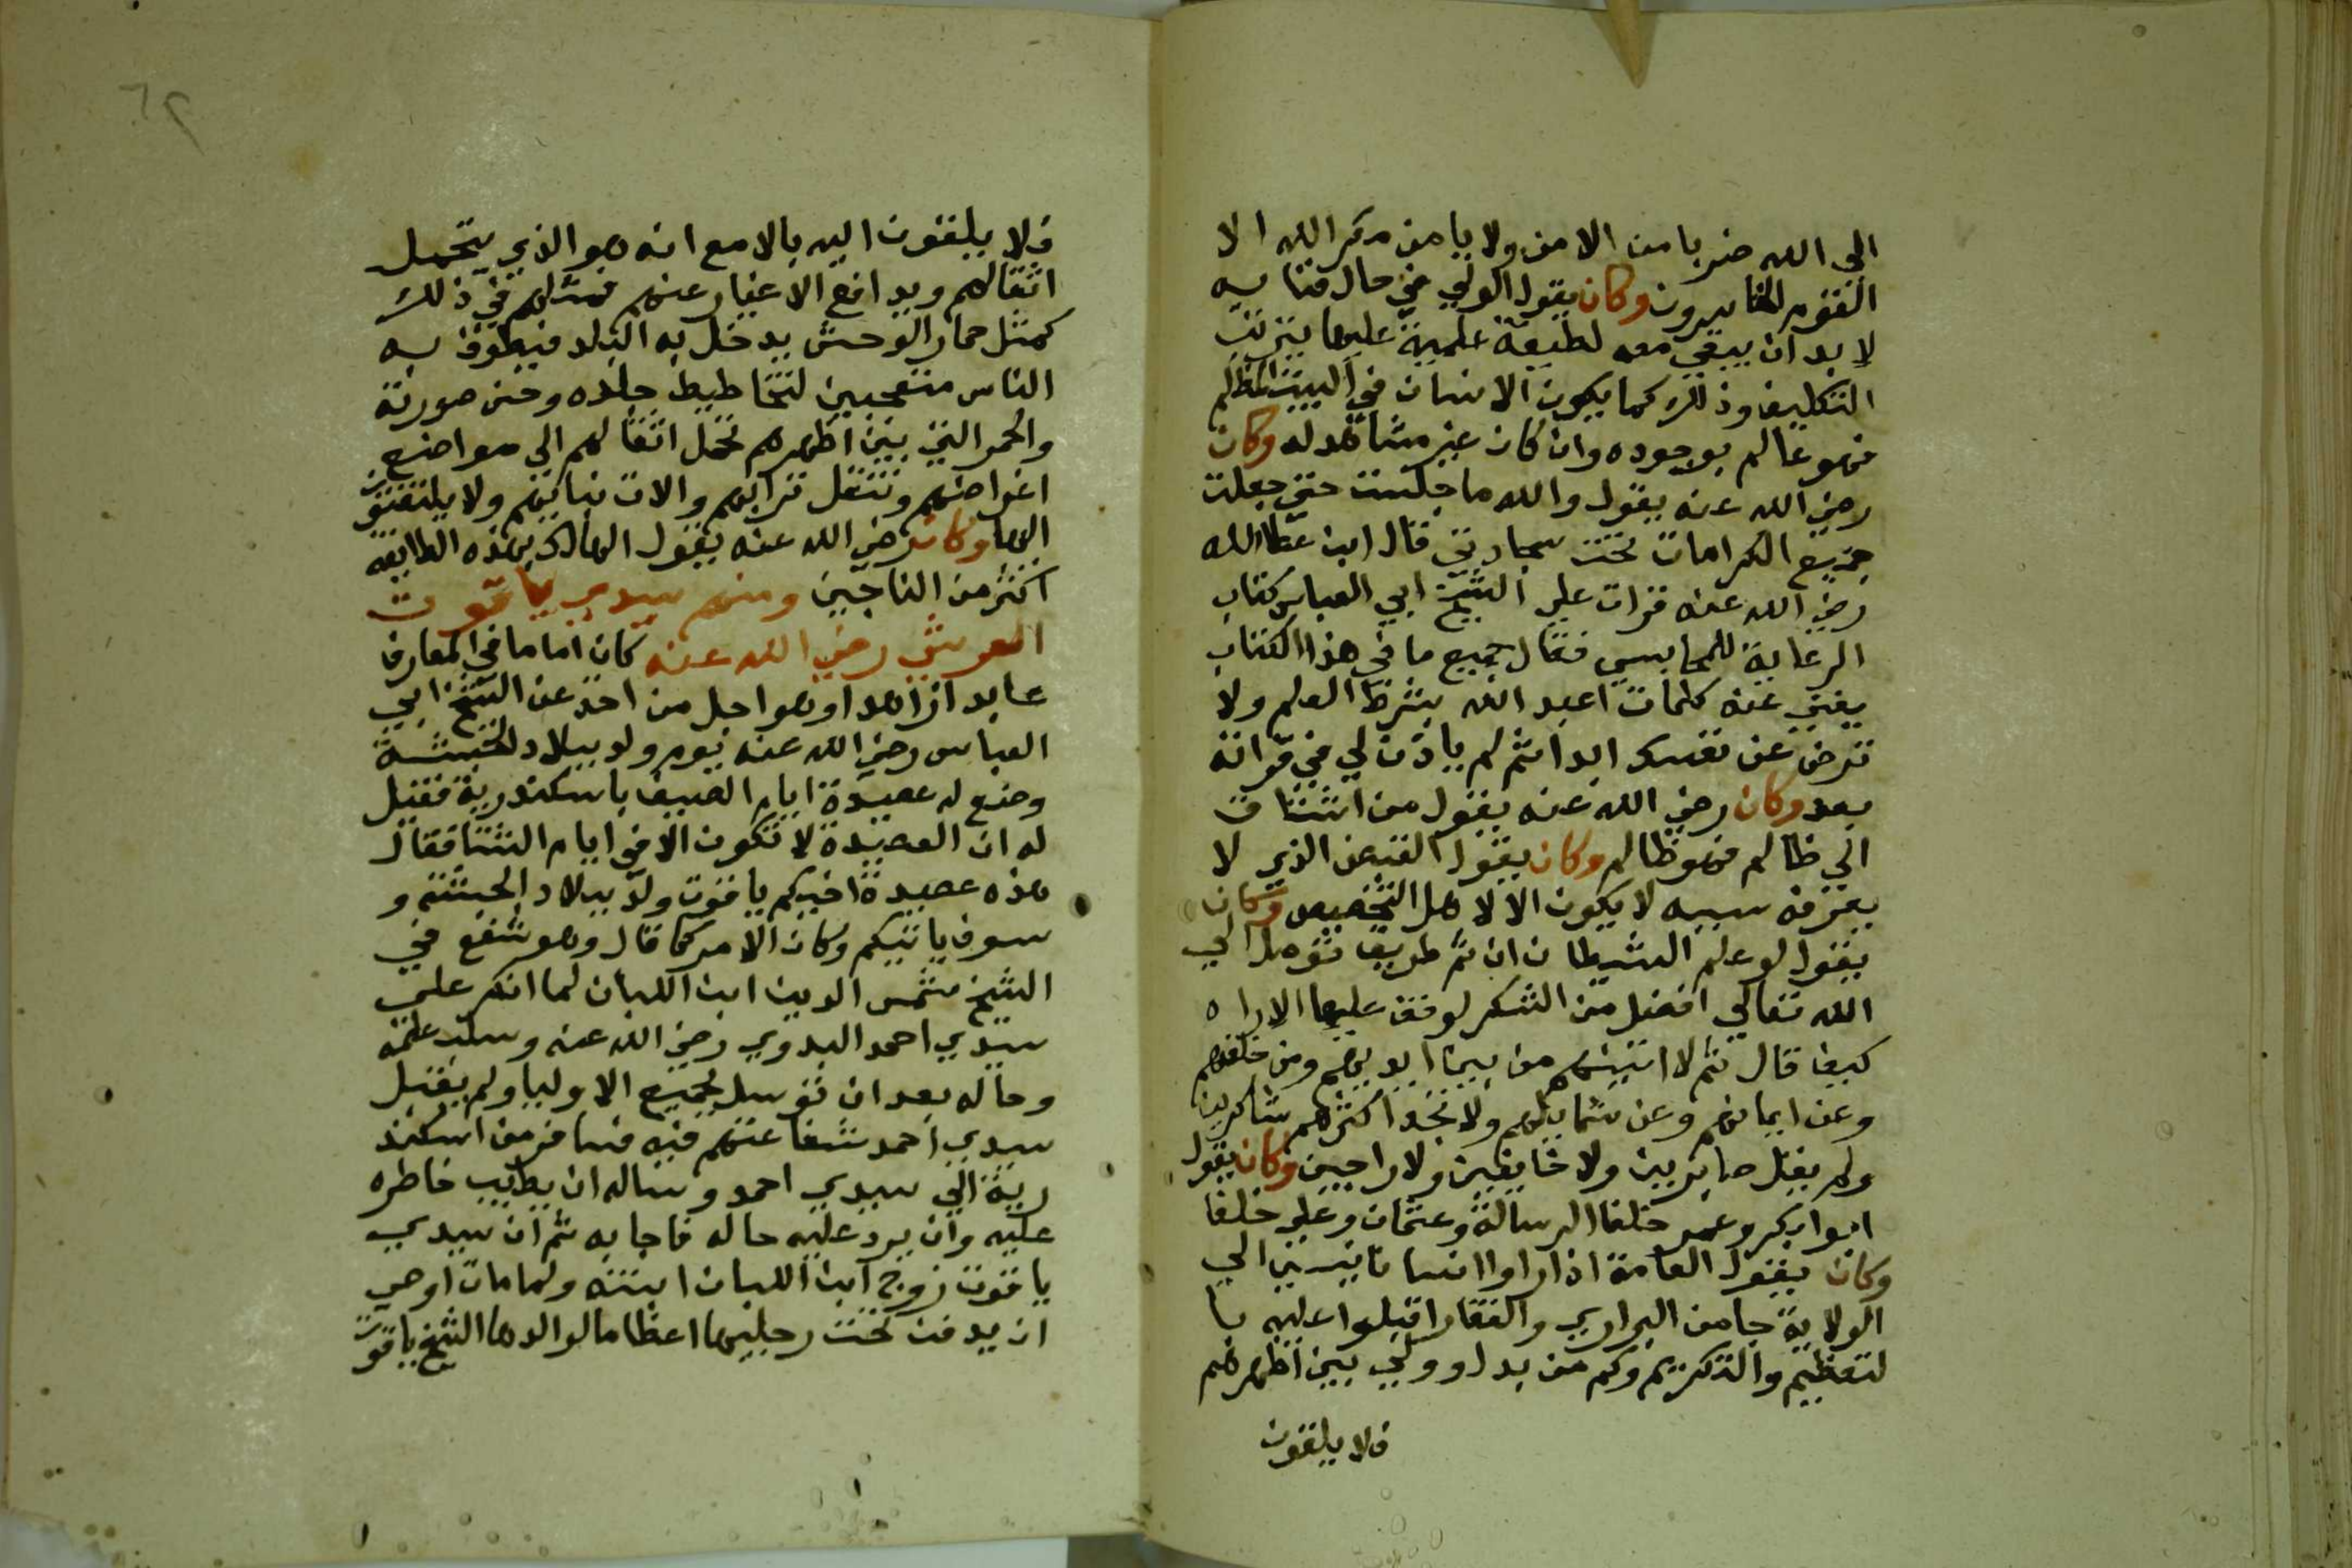 الي الله ضربا من الامن ولا يامن مكر الله الا
القوم الخاسرون وكان يقول الولي في حال فنايه
لا بد ان يبقي معه لطيفة علمية عليها يترتب
التكليف وذلك كما يكون الانسان في البيت المظلم
فهو عالم بوجوده وان كان غير مشاهد له وكان
رضي الله عنه يقول والله ما جلست حتي جعلت
جميع الكرامات تحت سجادتي قال ابن عطا الله
رضي الله عنه قرات علي الشيخ ابي العباس كتاب
الرعاية للمحاسبي فقال جميع ما في هذا الكتاب
يغني عنه كلمات اعبد الله بشرط العلم ولا
ترض عن نفسك ابدا ثم لم ياذن لي في قراته
بعد وكان رضي الله عنه يقول من اشتاق
الي ظالم فهو ظالم وكان يقول القبض الذي لا
يعرف سببه لا يكون الا لاهل التخصيص وكان
يقول لو علم الشيطان ان ثم طريقا توصل الي
الله تعالي افضل من الشكر لوقف عليها الا تراه
كيف قال ثم لاتينهم من بين ايديهم ومن خلفهم
وعن ايمانهم وعن شمايلهم ولا تجد اكثرهم شاكرين
ولم يقل صابرين ولا خايفين ولا راجين وكان يقول
ابوا بكر وعمر خلفا الرسالة وعثمان وعلي خلفا
وكان يقول العامة اذا راوا انسانا ينسب الي
الولاية جا من البراري والقفار اقبلوا عليه با
لتعظيم والتكريم وكم من بدل وولي بين اظهرهم
فلا يلقون
٦٢
فلا يلقون اليه بالا مع انه هو الذي يتحمل
اثقالهم ويدافع الاغيار عنهم فمثلهم في ذلك
كمثل حمار الوحش يدخل به البلد فيطوف به
الناس متعجبين لتخاطيط جلده وحسن صورته
والحمر التي بين اظهرهم تحمل اثقالهم الي مواضع
اغراضهم وتنقل ترابهم والات بنايهم ولا يلتفتون
اليها وكان رضي الله عنه يقول الهالك بهذه الطايفه
اكثر من الناجين ومنهم سيدي ياقوت
العرشي رضي الله عنه كان اماما في المعارف
عابدا زاهدا وهو اجل من اخذ عن الشيخ ابي
العباس رضي الله عنه يوم ولد ببلاد الحبشة
وصنع له عصيدة ايام الصيف باسكندرية فقيل
له ان العصيدة لا تكون الا في ايام الشتا فقال
هذه عصيدة اخيكم ياقوت ولد ببلاد الحبشة و
سوف ياتيكم وكان الامر كما قال وهو شفع في
الشيخ شمس الدين ابن اللبان لما انكر علي
سيدي احمد البدوي رضي الله عنه وسلب علمه
وحاله بعد ان توسل بجميع الاوليا ولم يقبل
سيدي احمد شفاعتهم فيه فسافر من اسكند
رية الي سيدي احمد وساله ان يطيب خاطره
عليه وان يرد عليه حاله فاجابه ثم ان سيدي
ياقوت زوج ابن اللبان ابنته ولما مات اوصي
ان يدفن تحت رجليها اعظاما لوالدها الشيخ ياقوت